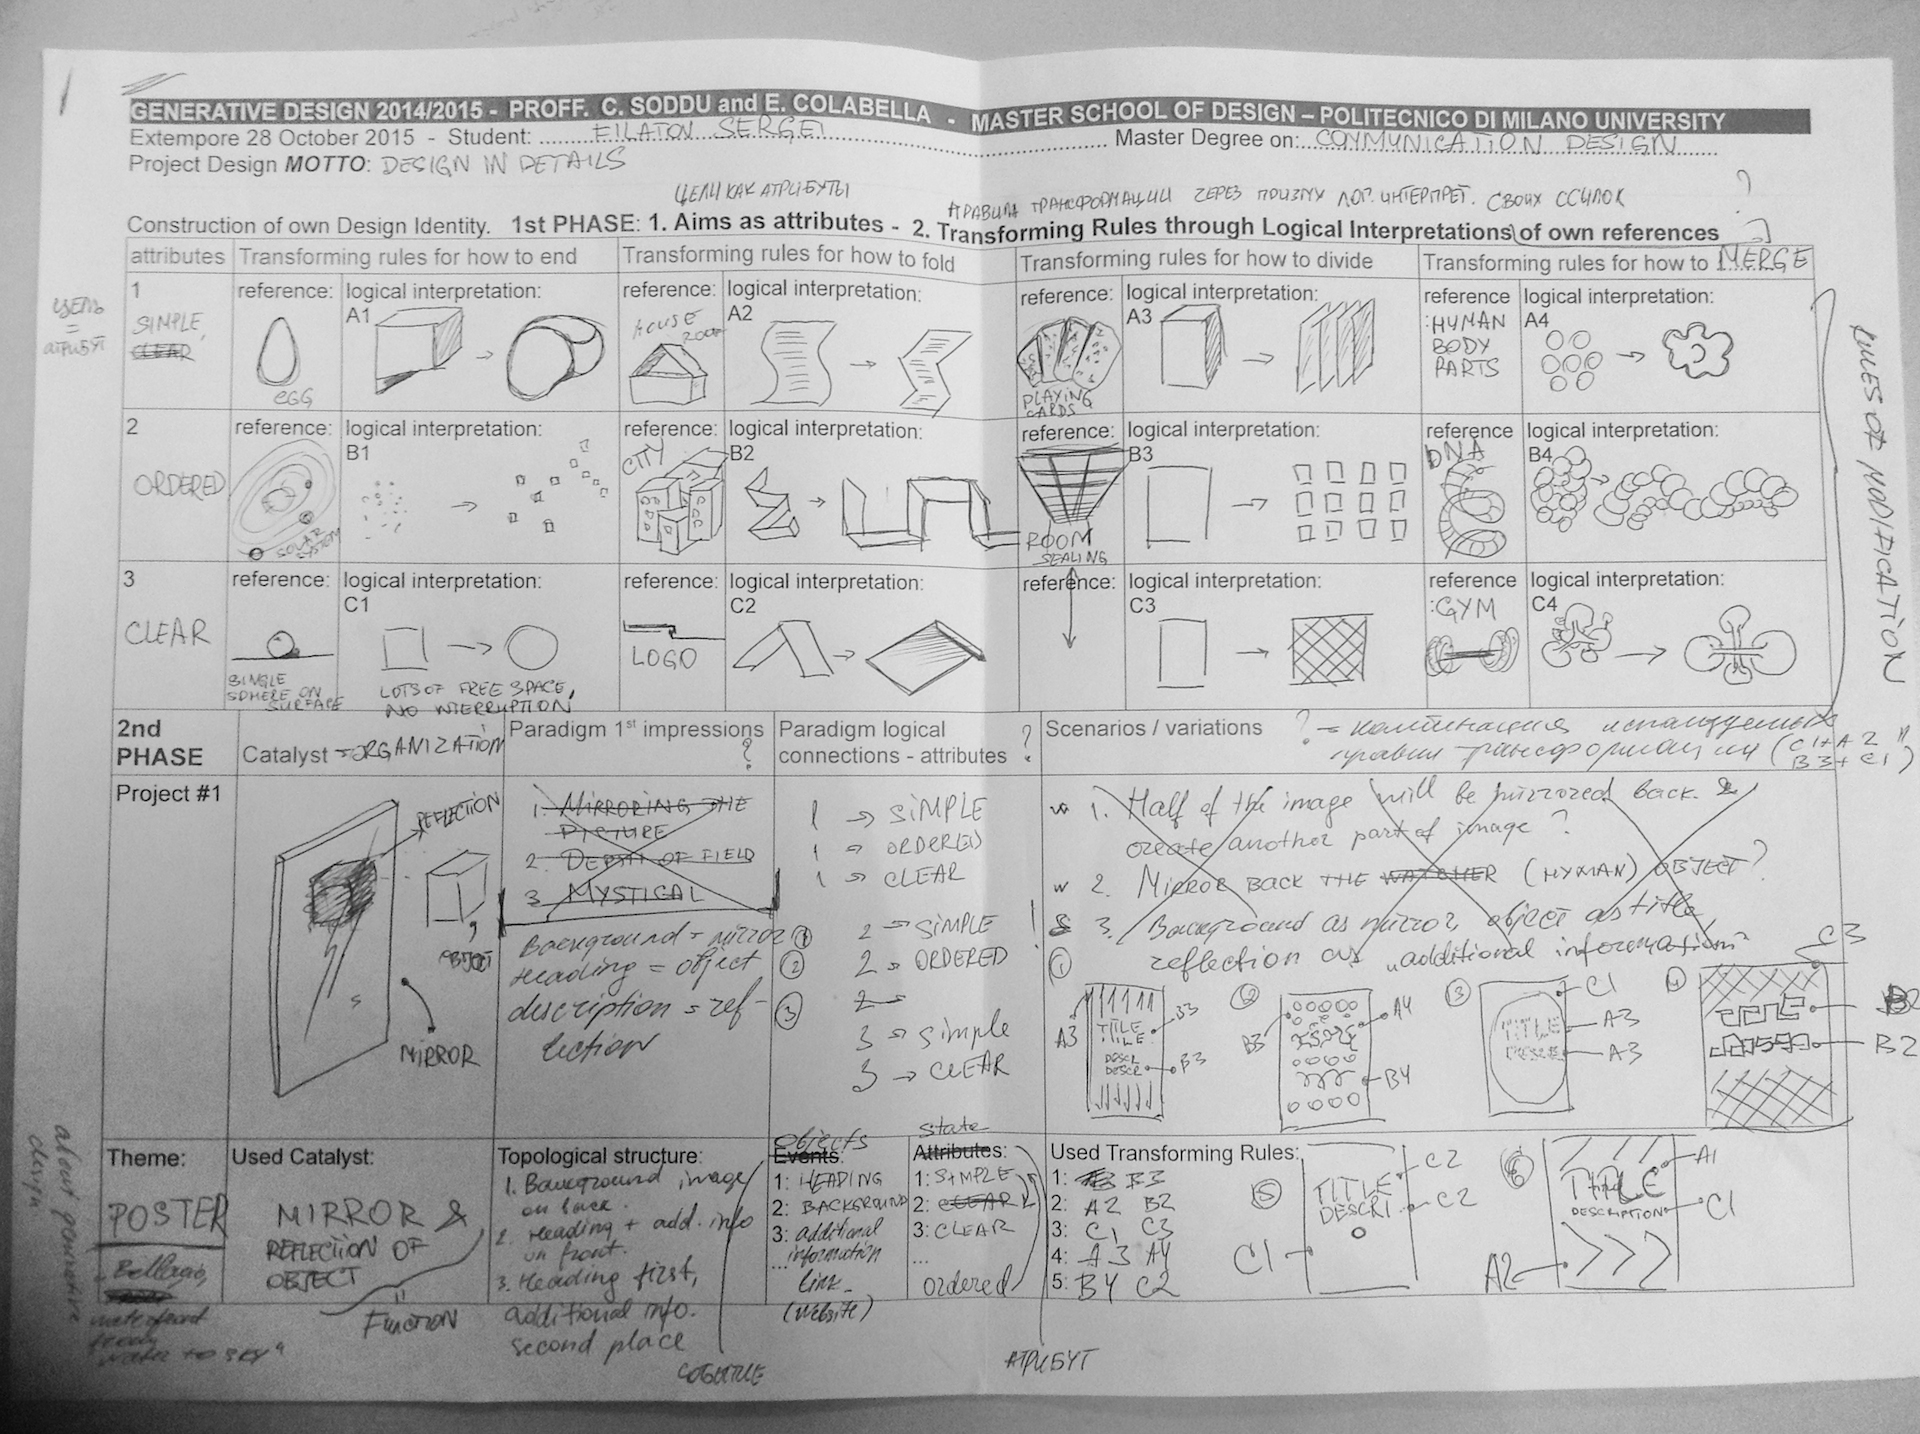 GENERATIVE DESIGN 2014/2015 - PROFF. C. SODDU and E. COLABELLA - MASTER SCHOOL OF DESIGN – POLITECNICO DI MILANO UNIVERSITY
Extempore 28 October 2015 - Student: FILATOV SERGEI Master Degree on: COMMUNICATION DESIGN
Project Design MOTTO: DESIGN IN DETAILS
ЦЕЛИ КАК АТРИБУТЫ
ПРАВИЛА ТРАНСФОРМАЦИИ ЧЕРЕЗ ПРИЗМУ ЛОГ. ИНТЕРПРЕТ. СВОИХ ССЫЛОК ?
Construction of own Design Identity. 1st PHASE: 1. Aims as attributes - 2. Transforming Rules through Logical Interpretations of own references
attributes Transforming rules for how to end Transforming rules for how to fold Transforming rules for how to divide Transforming rules for how to MERGE
ЦЕЛЬ
=
АТРИБУТ
1
SIMPLE,
CLEAR
reference:
EGG
logical interpretation:
A1
reference:
HOUSE
ROOF
logical interpretation:
A2
reference:
PLAYING
CARDS
logical interpretation:
A3
reference
:HUMAN
BODY
PARTS
logical interpretation:
A4
RULES OF MODIFICATION
2
ORDERED
reference:
SOLAR
SYSTEM
logical interpretation:
B1
reference:
CITY
logical interpretation:
B2
reference:
ROOM
SEALING
logical interpretation:
B3
reference
DNA
logical interpretation:
B4
3
CLEAR
reference:
SINGLE
SPHERE ON
SURFACE
logical interpretation:
C1
LOTS OF FREE SPACE,
NO INTERRUPTION
reference:
LOGO
logical interpretation:
C2
reference:
logical interpretation:
C3
reference
:GYM
logical interpretation:
C4
2nd
PHASE
Catalyst = ORGANIZATION
Paradigm 1st impressions
?
Paradigm logical
connections - attributes ?
Scenarios / variations
? = комбинация используемых
правил трансформации (C1+A2
B3+C1)
Project #1
REFLECTION
OBJECT
MIRROR
1. MIRRORING THE
PICTURE
2. DEPTH OF FIELD
3. MYSTICAL
Background = mirror
Heading = object
description = ref-
lection
1 → SIMPLE
1 → ORDERED
1 → CLEAR
① 2 → SIMPLE
② 2 → ORDERED
③ 2 →
3 → simple
3 → CLEAR
1. Half of the image will be mirrored back &
create another part of image?
2. MIRROR BACK THE WATCHER (HYMAN) OBJECT?
! 3. Background as mirror, object as title
reflection as „additional information"
①
A3
TITLE
TITLE
DESCR
DESCR
B3
B3
②
B3
A4
B4
③
TITLE
DESCR
C1
A3
A3
④
C3
B2
B2
about generative
design
Theme:
POSTER
water to sky"
Used Catalyst:
MIRROR &
REFLECTION OF
OBJECT
=
FUNCTION
Topological structure:
1. Background image
on back.
2. Heading + add. info
on front.
3. Heading first,
additional info.
second place
objects
Events:
1: HEADING
2: BACKGROUND
3: additional
information
...
link
(website)
СОБЫТИЕ
state
Attributes:
1: SIMPLE
2: CLEAR
3: CLEAR
...
ordered
АТРИБУТ
Used Transforming Rules:
1: B3
2: A2 B2
3: C1 C3
4: A3 A4
5: B4 C2
⑤
TITLE
DESCRI
C2
C2
C1
⑥
TITLE
DESCRIPTION
A1
C1
A2